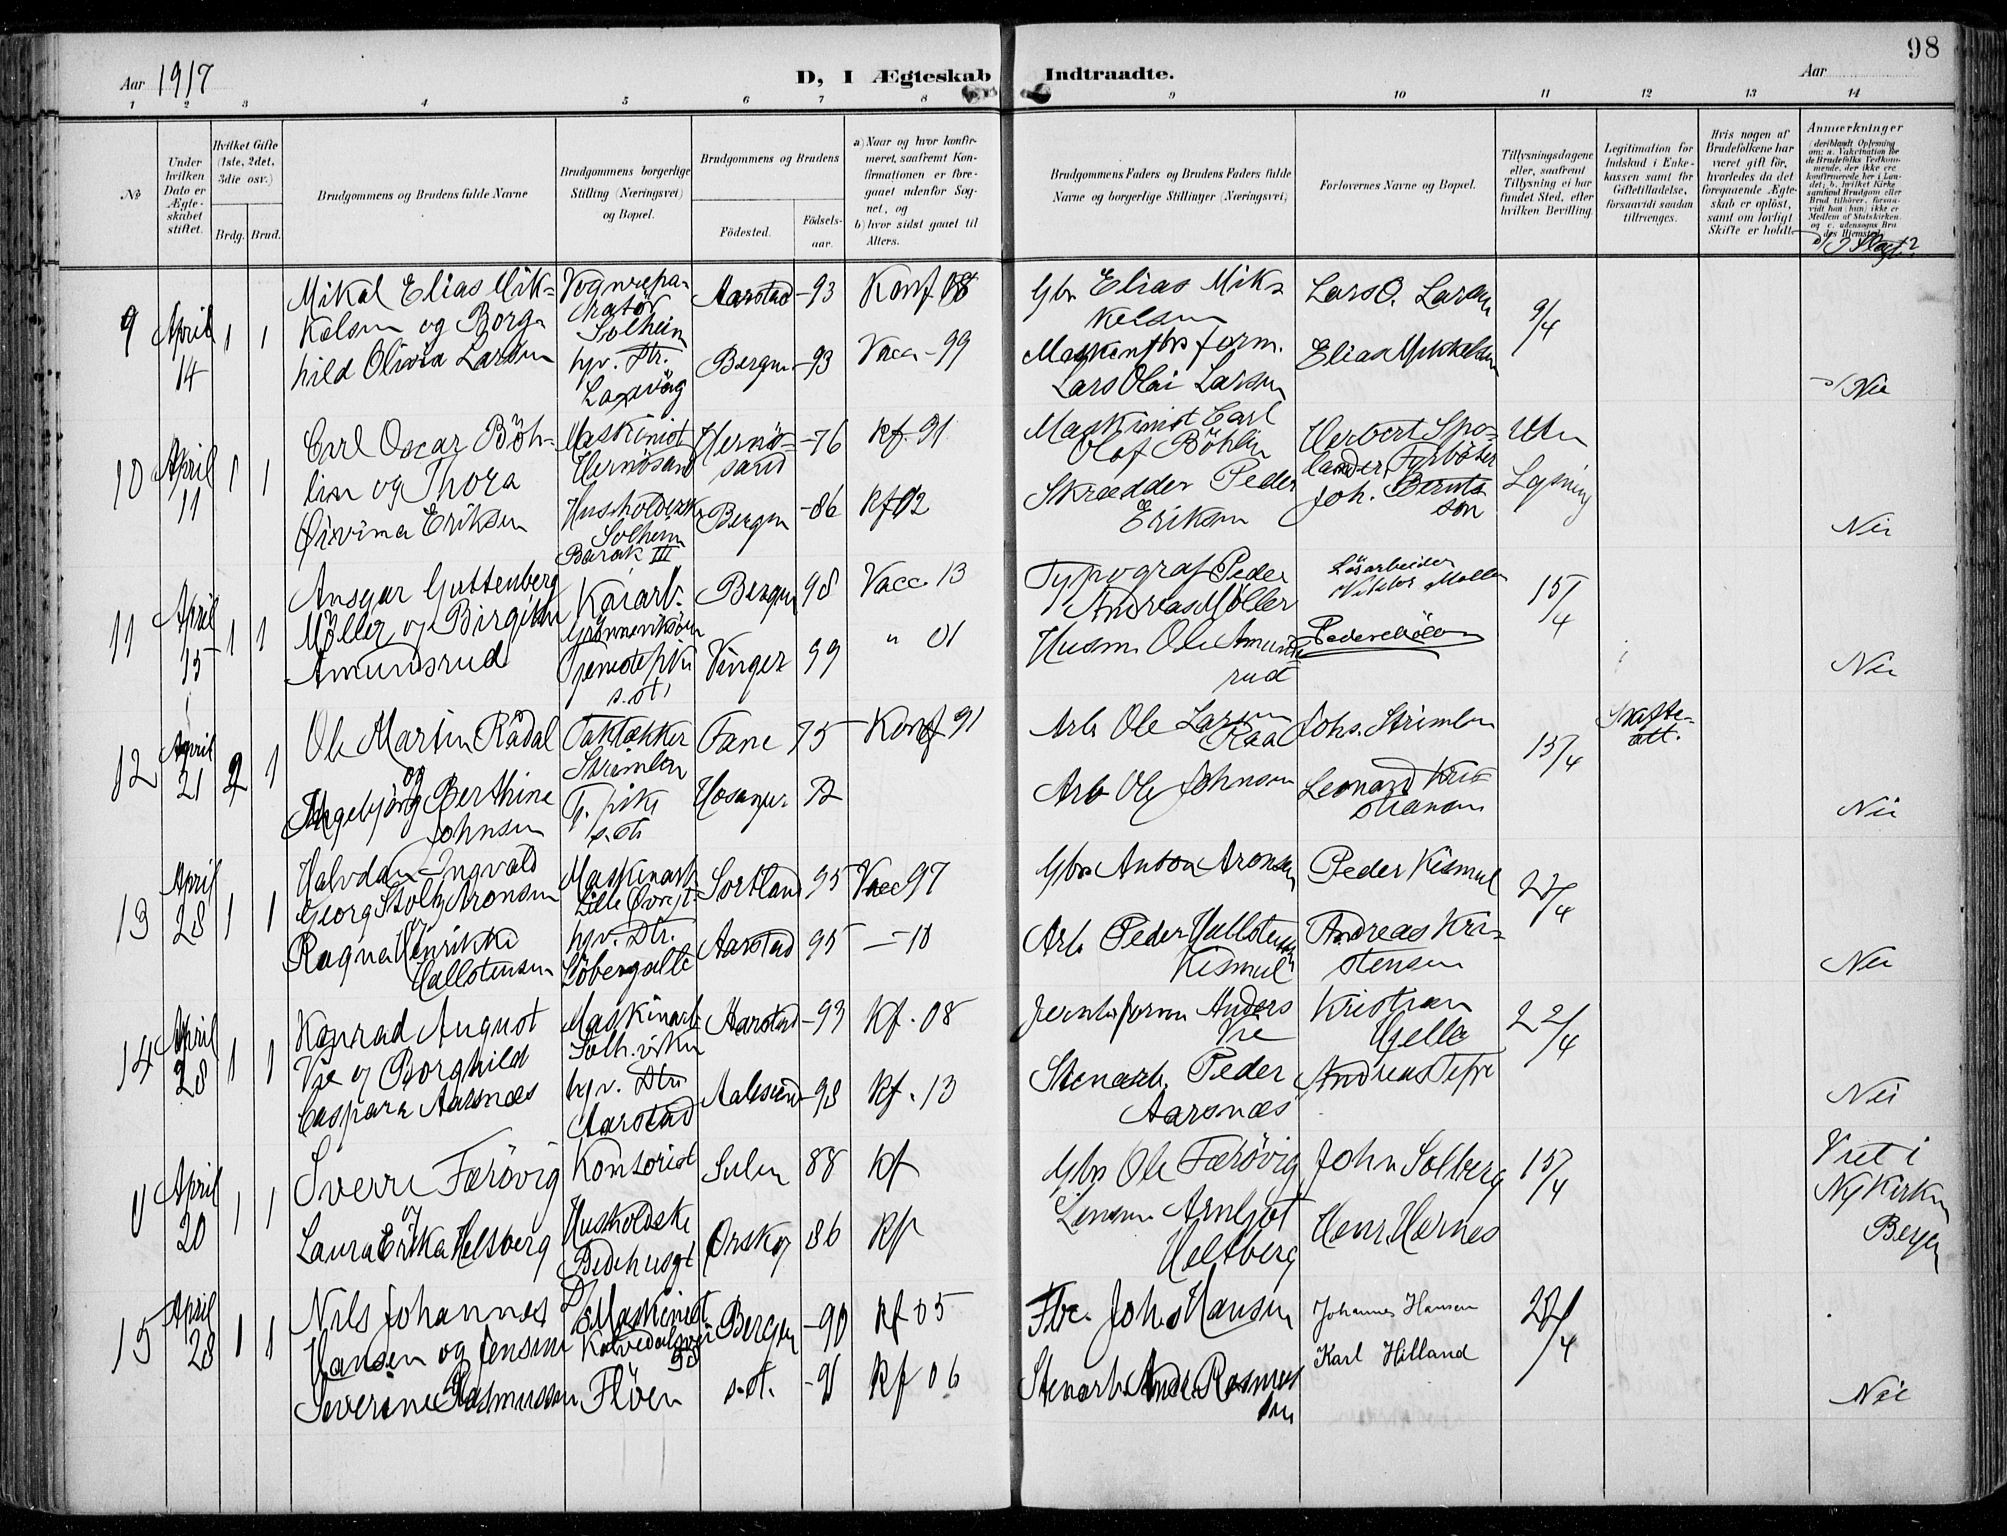 98
Aar 1917
D, I Ægteskab Indtraadte.
Aar
1 2 3 4 5 6 7 8 9 10 11 12 13 14
№
Under hvilken Dato er Ægteskabet stiftet.
Hvilket Gifte (1ste, 2det, 3die osv.)
Brdg. Brud.
Brudgommens og Brudens fulde Navne
Brudgommens borgerlige Stilling (Næringsvei) og Bopæl.
Brudgommens og Brudens
Födested.
Födsels-aar.
a) Naar og hvor konfirmeret, saafremt Konfirmationen er foregaaet udenfor Sognet, og
b) hvor sidst gaaet til Alters.
Brudgommens Faders og Brudens Faders fulde Navne og borgerlige Stillinger (Næringsvei)
Forlovernes Navne og Bopæl.
Tillysningsdagene eller, saafremt Tillysning ei har fundet Sted, efter hvilken Bevilling.
Legitimation for Indskud i Enkekassen samt for Giftetilladelse, forsaavidt saadan tiltrænges.
Hvis nogen af Brudefolkene har været gift för, hvorledes da det foregaaende Ægteskab er oplöst, samt om lovligt Skifte er holdt.
Anmærkninger
(deriblandt Oplysning om: a. Vakcination for de Brudefolks Vedkommende, der ikke ere konfirmerede her i Landet; b. hvilket Kirkesamfund Brudgom eller Brud tilhörer, forsaavidt han (hun) ikke er Medlem af Statskirken, og c. udensogns Bruds Hjemsted.
9
April 14
1 1
Mikal Elias Mikkelsen og Borghild Olivia Larsen
Vognreparatör Solheim
hjv. Dtr. Laxevåg
Aarstad -93 Konf 08
Bergen -93 Vacc -99
Gbr Elias Mikkelsen
Maskenfbr form. Lars Olai Larsen
Lars O. Larsen
Elias Mikkelsen
9/4
Nei
10
April 11
1 1
Carl Oscar Böhlin og Thora Öivina Eriksen
Maskinist Hernösand
Husholderske Solheim Barak III
Hernösand -76 Kf. 91
Bergen -86 Kf 02
Maskinist Carl Olof Böhlin
Skrædder Peder Eriksen
Herbert Spolander, Fyrböter
Joh. Berntsson
Uten Lysning
Nei
11
April 15
1 1
Ansgar Guttenberg Möller og Birgitha Amundsrud
Kaiarb. Grönneviksören
Tjenestepike s. st.
Bergen 98 Vacc. 13
Vinger 99 " 01
Typograf Peder Andreas Möller
Husm. Ole Amundsrud
Lösarbeider Viktor Möller
15/4
Nei
12
April 21
2 1
Ole Martin Rådal og Ingebjörg Berthine Johnsen
Taktækker Strimlen
T. pike s. st.
Fane 75 Konf 91
Hosanger 72
Arb Ole Larsen Raadal
Arb Ole Johnsen
Johs. Strimlen
Leonard Kristiansen
15/4
Skifteatt.
Nei
13
April 28
1 1
Halvdan Ingvald Georg Stoltz Aronsen og Ragna Henrikke Hallstensen
Maskinarb Lille Övregt.
hjv. Dtr. Löbergsalle
Sortland 95 Vacc 97
Aarstad 95 — 10
Gbr Anton Aronsen
Arb Peder Hallstensen Kismul
Peder Kismul
Andreas Kristensen
22/4
Nei
14
April 28
1 1
Konrad August Vie og Borghild Caspara Aarsnæs
Maskinarb Solh.viken
hjv. Dtr Aarstad
Aarstad -93 Kf. 08
Aalesund -98 Kf. 13
Jernb.form Anders Vie
Stenarb. Peder Aarsnæs
Kristian Gelle
Andreas Tefre
22/4
Nei
0
April 20
1 1
Sverre Færövig og Laura Erika Heltberg
Kontorist
Husholdske Bedehusgt
Sulen 88 Kf
Örskog 86 Kf
Gbr Ole Færövig
Lensm Arnljot Heltberg
John Solberg
Henr. Hernes
15/4
Viet i Nykirken Bergen
15
April 28
1 1
Nils Johannes Hansen og Jensine Severine Rasmussen
D/S Maskinist Kalvedalsvei
Flöen
Bergen -90 Kf 05
s. st. -91 Kf 06
Fbr. Joh. Hansen
Stenarb. Anders Rasmussen
Johannes Hansen
Karl Hilland
22/4
Nei